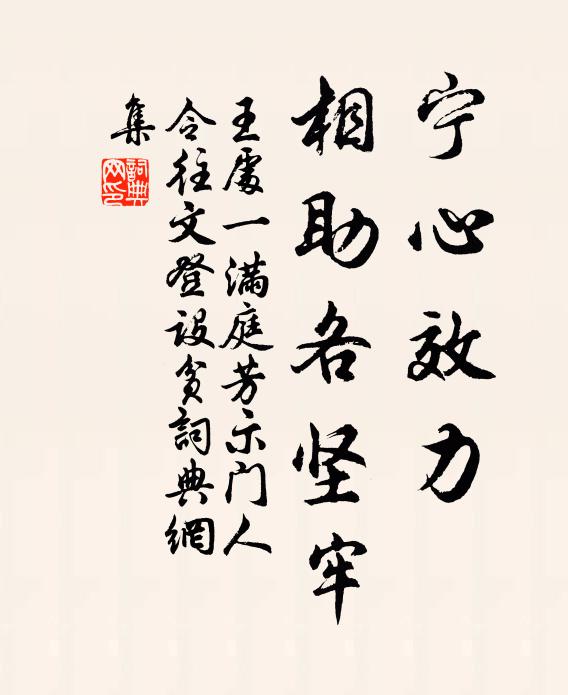 宁心效力
相助各坚牢
王處一满庭芳示门人
令往文登设贫詞典網
集
詞典网印